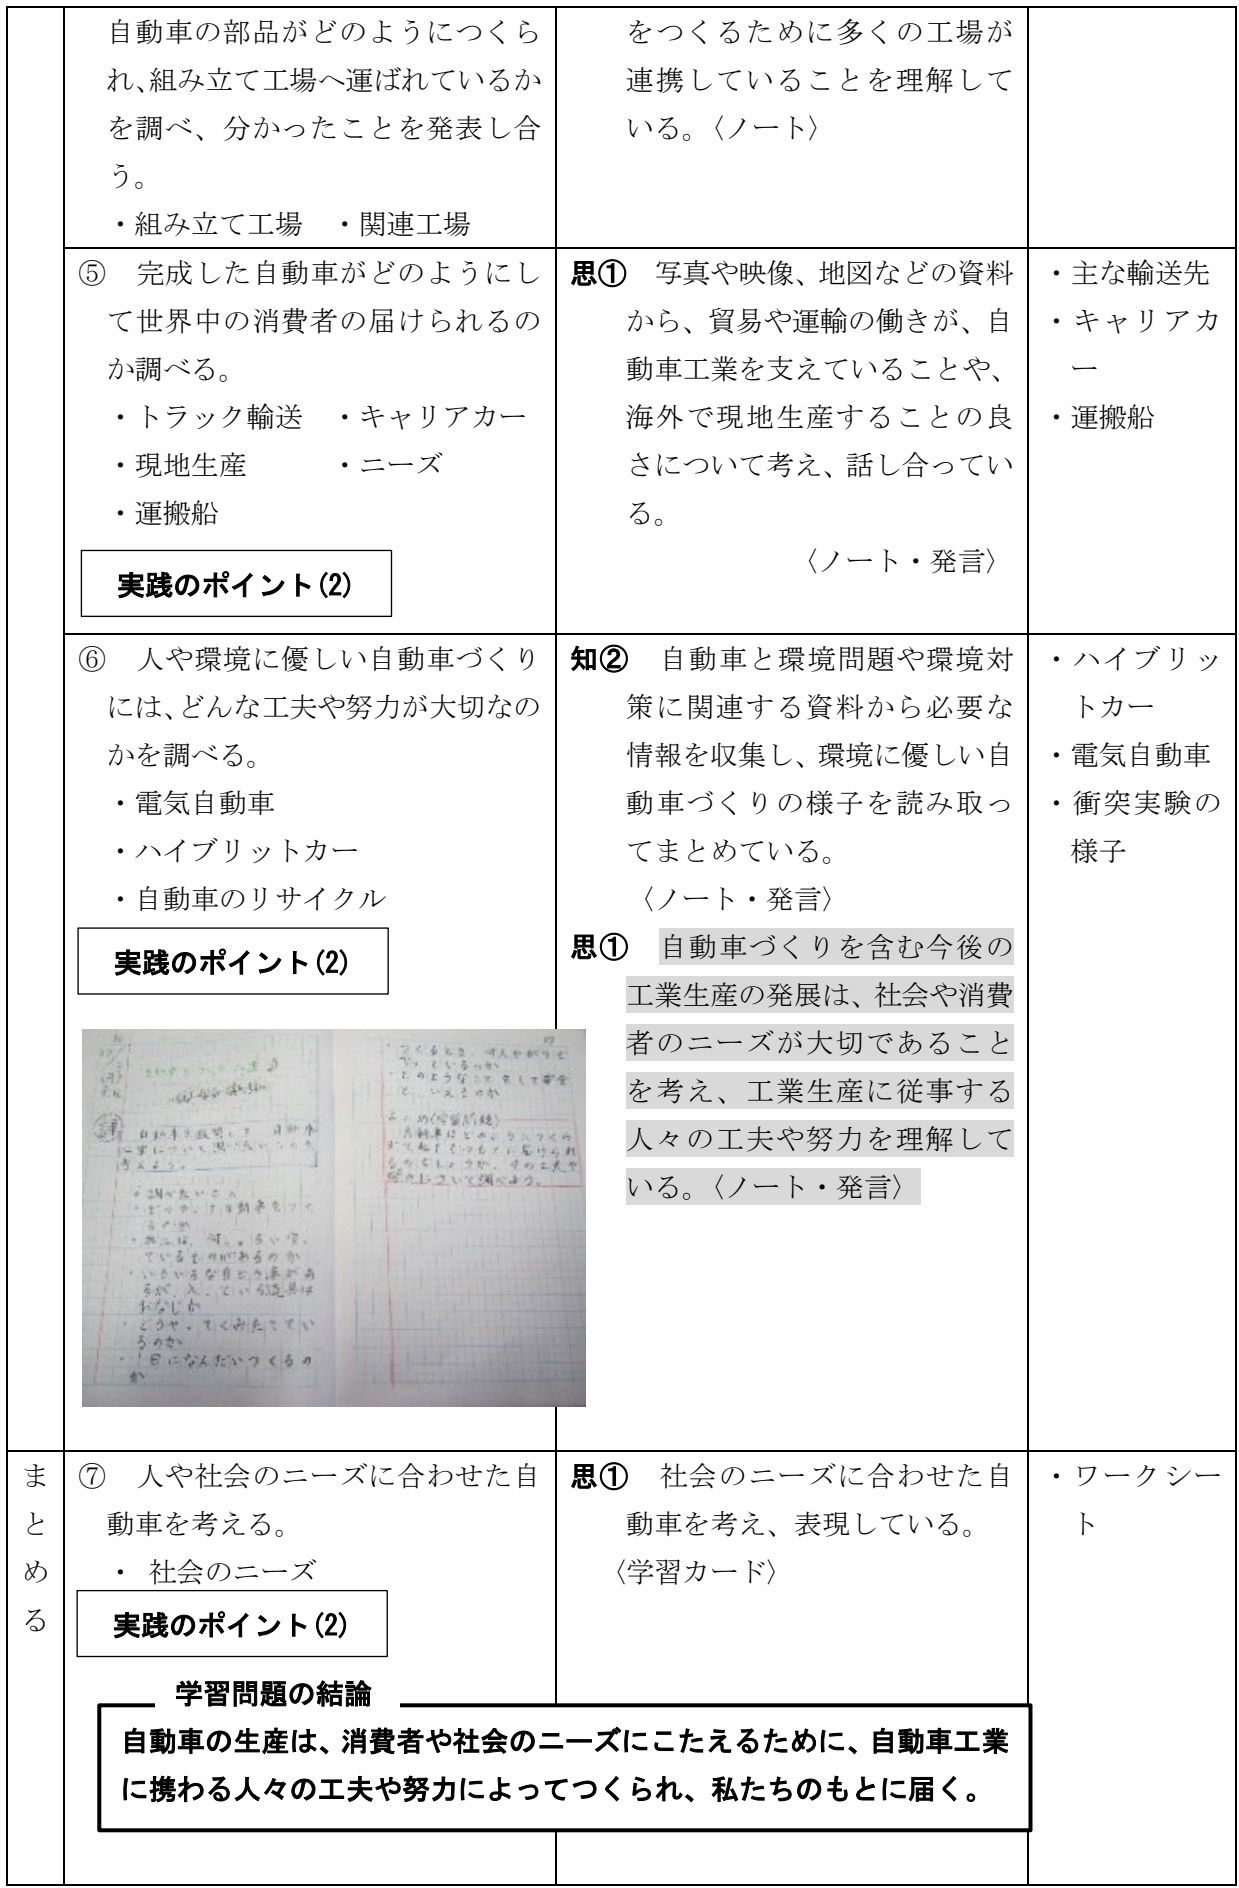 自動車の部品がどのようにつくら
れ、組み立て工場へ運ばれているか
を調べ、分かったことを発表し合
う。
・組み立て工場　・関連工場
をつくるために多くの工場が
連携していることを理解して
いる。〈ノート〉
⑤　完成した自動車がどのようにし
て世界中の消費者の届けられるの
か調べる。
・トラック輸送　・キャリアカー
・現地生産　　　・ニーズ
・運搬船
実践のポイント(2)
思①　写真や映像、地図などの資料
から、貿易や運輸の働きが、自
動車工業を支えていることや、
海外で現地生産することの良
さについて考え、話し合ってい
る。
〈ノート・発言〉
・主な輸送先
・キャリアカ
ー
・運搬船
⑥　人や環境に優しい自動車づくり
には、どんな工夫や努力が大切なの
かを調べる。
・電気自動車
・ハイブリットカー
・自動車のリサイクル
実践のポイント(2)
知②　自動車と環境問題や環境対
策に関連する資料から必要な
情報を収集し、環境に優しい自
動車づくりの様子を読み取っ
てまとめている。
〈ノート・発言〉
思①　自動車づくりを含む今後の
工業生産の発展は、社会や消費
者のニーズが大切であること
を考え、工業生産に従事する
人々の工夫や努力を理解して
いる。〈ノート・発言〉
・ハイブリッ
トカー
・電気自動車
・衝突実験の
様子
・どうやってくみたててい
るのか
・1日になんだいつくるの
か
まとめる
⑦　人や社会のニーズに合わせた自
動車を考える。
・ 社会のニーズ
実践のポイント(2)
思①　社会のニーズに合わせた自
動車を考え、表現している。
〈学習カード〉
・ワークシー
ト
学習問題の結論
自動車の生産は、消費者や社会のニーズにこたえるために、自動車工業
に携わる人々の工夫や努力によってつくられ、私たちのもとに届く。